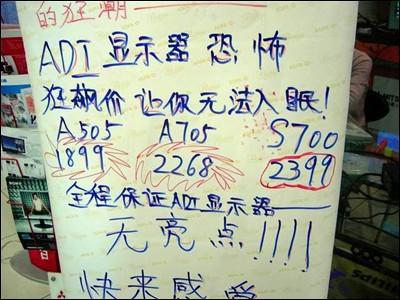 的狂潮——
ADI 显示器 恐怖
狂飙价 让你无法入眠!
A505 A705 S700
1899 2268 2399
全程保证ADI显示器——
无亮点!!!!
快来感受